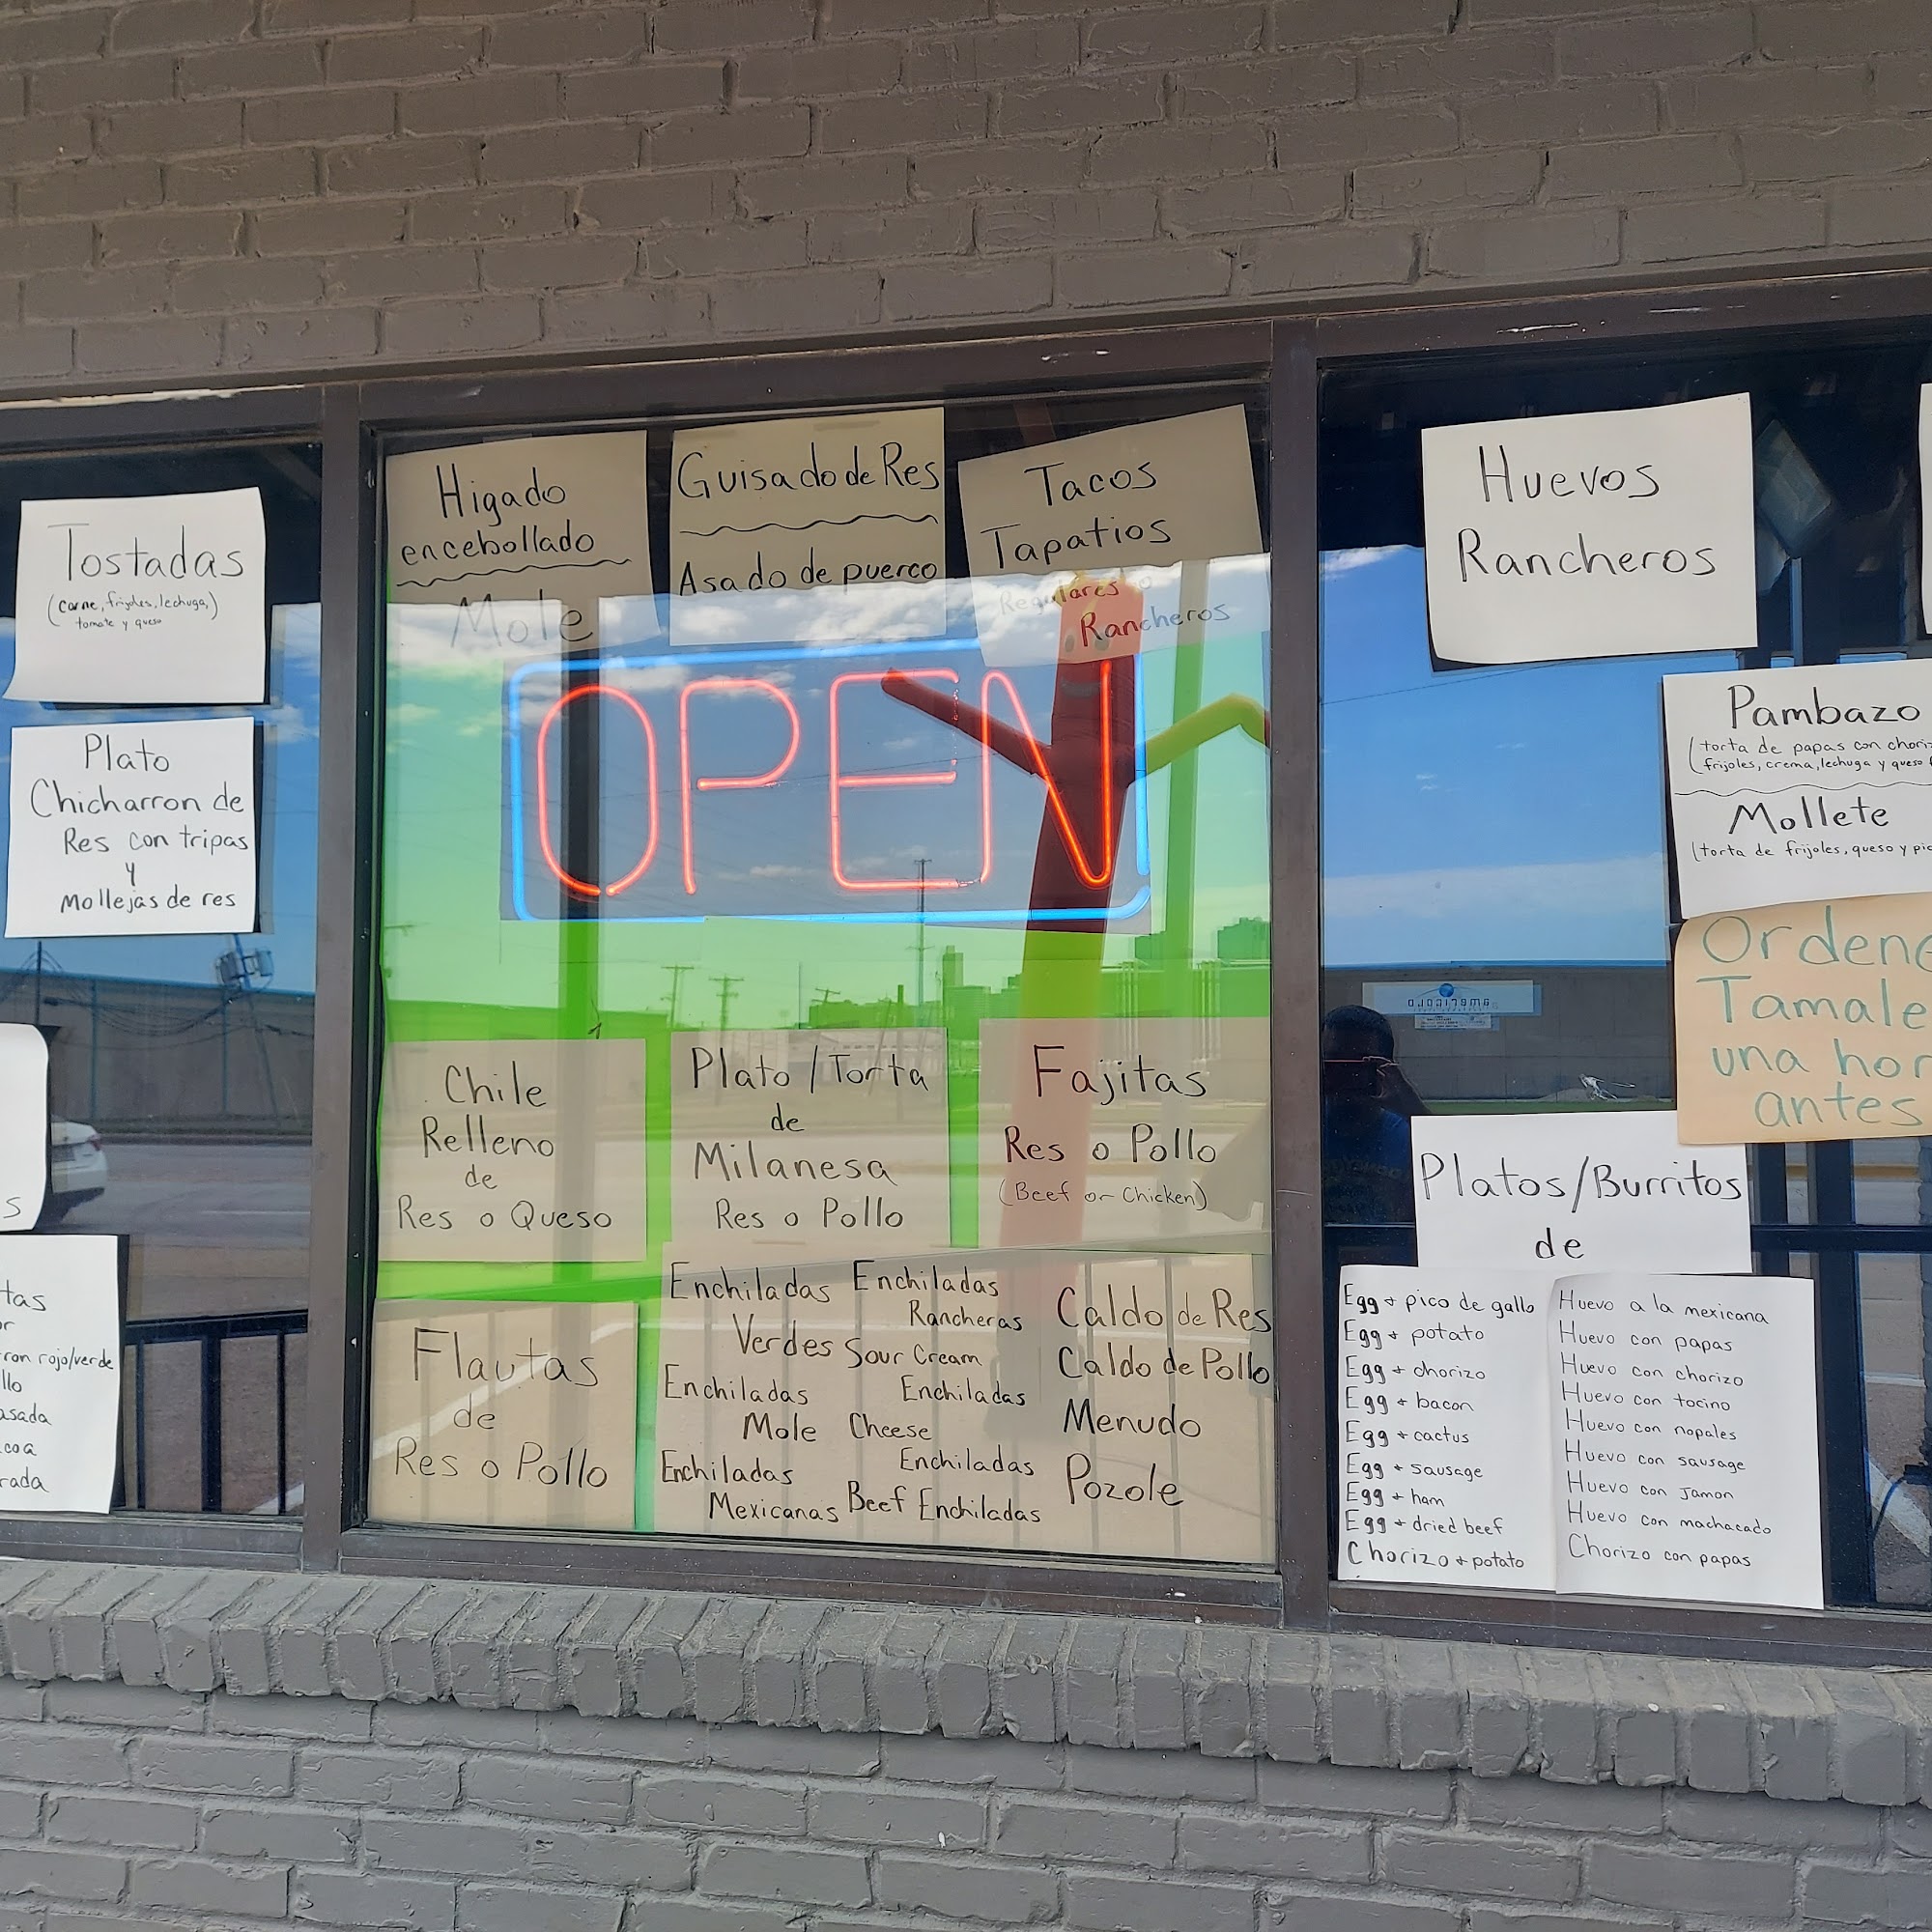 Tostadas
(carne, frijoles, lechuga,)
tomate y queso
Plato
Chicharron de
Res con tripas
y
Mollejas de res
s
tas
r
ron rojo/verde
llo
asada
coa
rada
Higado
encebollado
Mole
Guisado de Res
Asado de puerco
Tacos
Tapatios
Regulares o
Rancheros
OPEN
Chile
Relleno
de
Res o Queso
Plato/Torta
de
Milanesa
Res o Pollo
Fajitas
Res o Pollo
(Beef or Chicken)
Flautas
de
Res o Pollo
Enchiladas
Verdes
Enchiladas
Mole
Enchiladas
Mexicanas
Enchiladas
Rancheras
Sour Cream
Enchiladas
Cheese
Enchiladas
Beef Enchiladas
Caldo de Res
Caldo de Pollo
Menudo
Pozole
Huevos
Rancheros
Pambazo
(torta de papas con choriz
frijoles, crema, lechuga y queso f
Mollete
(torta de frijoles, queso y pic
Ordene
Tamale
una hor
antes
Platos/Burritos
de
Egg + pico de gallo
Egg + potato
Egg + chorizo
Egg + bacon
Egg + cactus
Egg + sausage
Egg + ham
Egg + dried beef
Chorizo + potato
Huevo a la mexicana
Huevo con papas
Huevo con chorizo
Huevo con tocino
Huevo con nopales
Huevo con sausage
Huevo con jamon
Huevo con machacado
Chorizo con papas